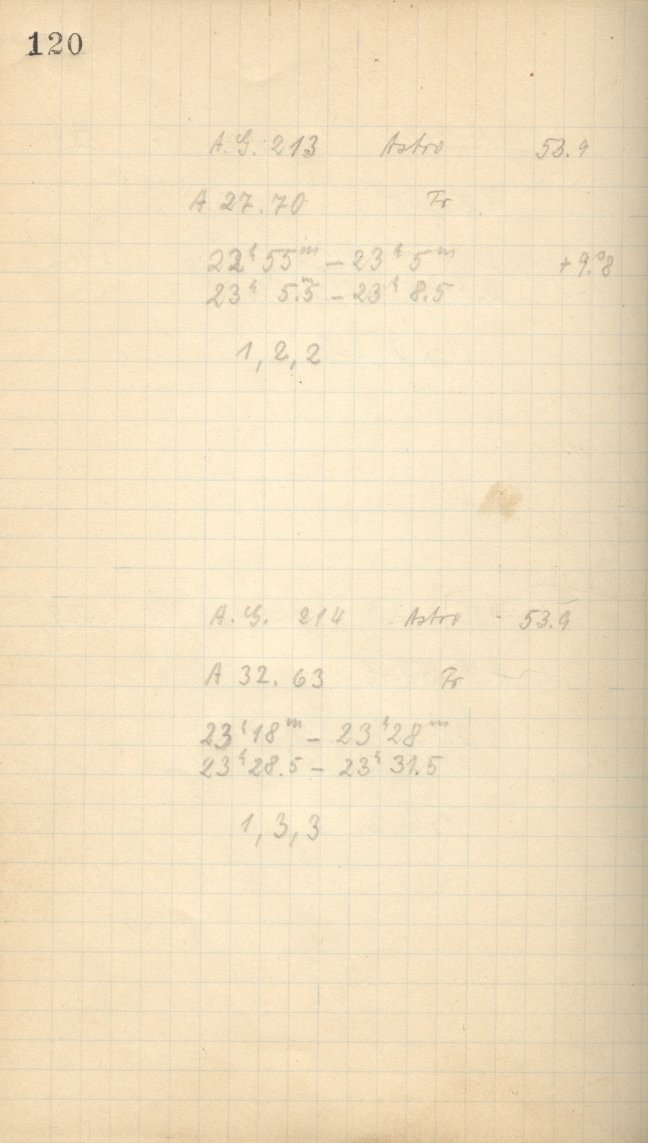 120
A.G. 213 Astro 53.9
A 27.70 Fr
22ʰ55ᵐ – 23ʰ5ᵐ +9.°8
23ʰ 5.ᵐ5 – 23ʰ 8.5
1, 2, 2
A.G. 214 Astro 53.9
A 32.63 Fr
23ʰ18ᵐ – 23ʰ28ᵐ
23ʰ28.5 – 23ʰ31.5
1, 3, 3